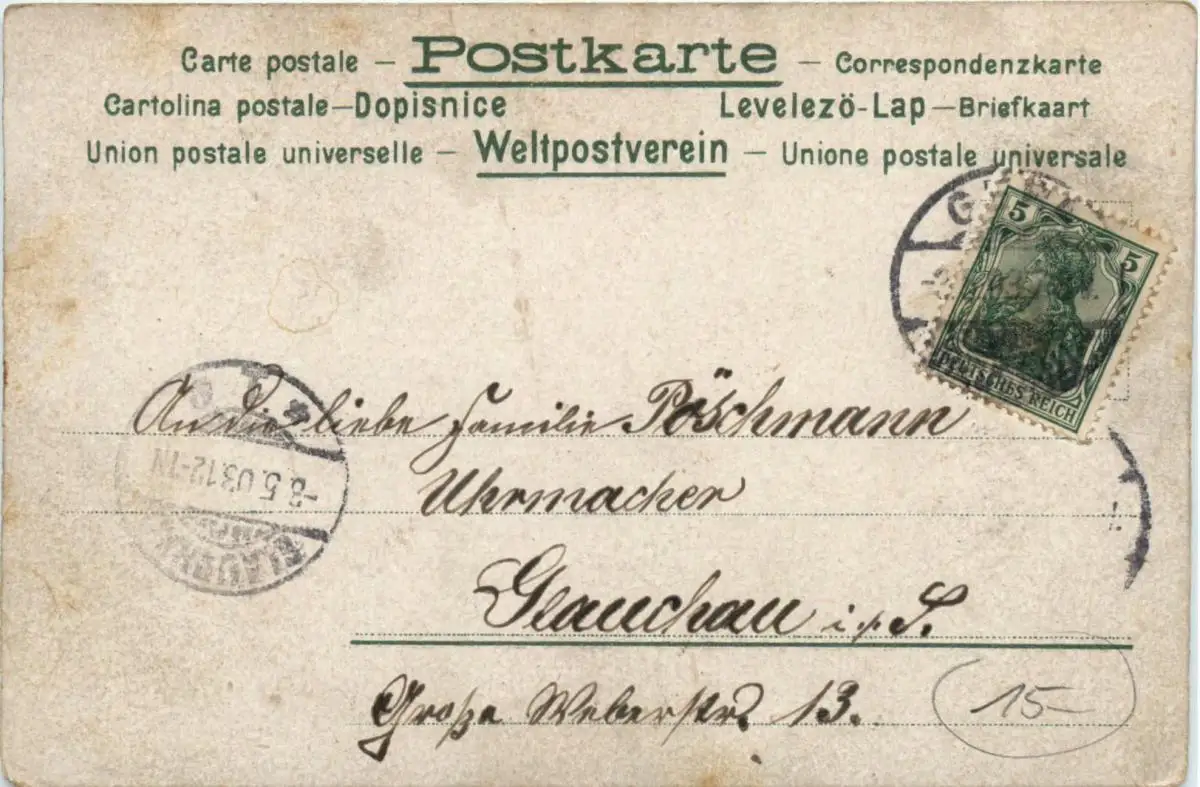 Carte postale – Postkarte – Correspondenzkarte
Cartolina postale – Dopisnice Levelezö-Lap – Briefkaart
Union postale universelle – Weltpostverein – Unione postale universale
5 5
DEUTSCHES REICH
An die liebe Familie Pöschmann
-8.5.03.12-1N
Uhrmacher
GLAUCHAU
Glauchau i./S.
Große Weberstr. 13.
15-